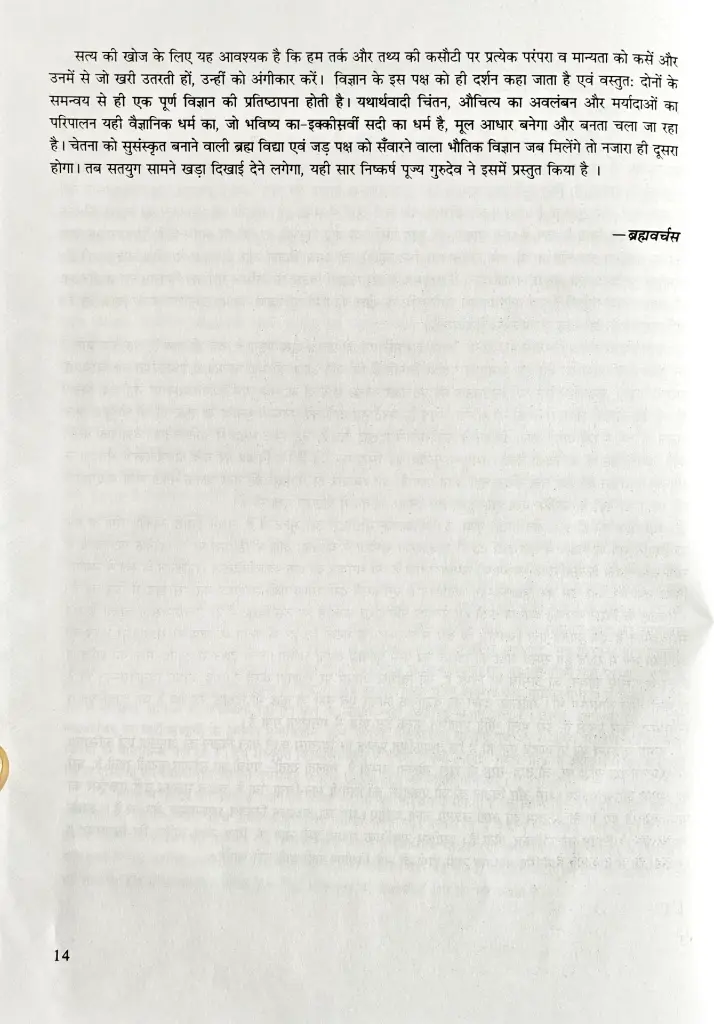 सत्य की खोज के लिए यह आवश्यक है कि हम तर्क और तथ्य की कसौटी पर प्रत्येक परंपरा व मान्यता को कसें और
उनमें से जो खरी उतरती हों, उन्हीं को अंगीकार करें। विज्ञान के इस पक्ष को ही दर्शन कहा जाता है एवं वस्तुतः दोनों के
समन्वय से ही एक पूर्ण विज्ञान की प्रतिष्ठापना होती है। यथार्थवादी चिंतन, औचित्य का अवलंबन और मर्यादाओं का
परिपालन यही वैज्ञानिक धर्म का, जो भविष्य का-इक्कीसवीं सदी का धर्म है, मूल आधार बनेगा और बनता चला जा रहा
है। चेतना को सुसंस्कृत बनाने वाली ब्रह्म विद्या एवं जड़ पक्ष को सँवारने वाला भौतिक विज्ञान जब मिलेंगे तो नजारा ही दूसरा
होगा। तब सतयुग सामने खड़ा दिखाई देने लगेगा, यही सार निष्कर्ष पूज्य गुरुदेव ने इसमें प्रस्तुत किया है ।
—ब्रह्मवर्चस
14